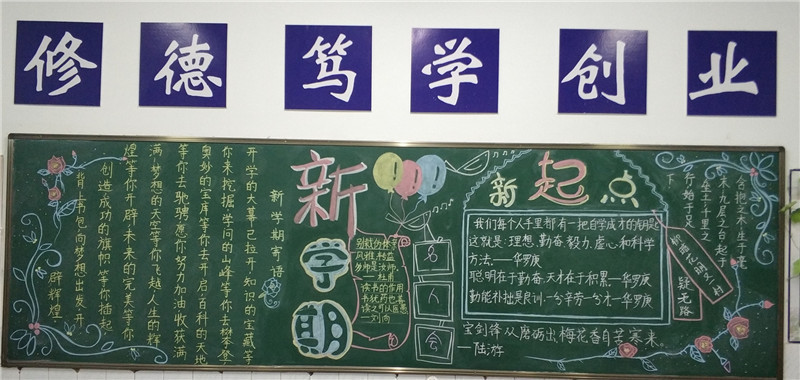 修德 笃学 创业
新学期寄语
开学的大幕已拉开,知识的宝藏等
你来挖掘学问的山峰等你去攀登
奥妙的宝库等你去开启百科的天地
等你去驰骋愿你努力加油收获满
满梦想的天空等你飞越人生的辉
煌等你开辟,未来的完美等你
创造成功的旗帜等你插起
背上书包向梦想出发,开
辟辉煌
新
学
期
别裁伪体亲
风雅,转益
多师是汝师。
——杜甫
读书的作用
书犹药也善
读之可以医愚
——刘向
名
人
会
新起点
我们每个人手里都有一把自学成才的钥匙
这就是:理想、勤奋、毅力、虚心和科学
方法。——华罗庚
聪明在于勤奋,天才在于积累。—华罗庚
勤能补拙是良训,一分辛劳一分才—华罗庚
宝剑锋从磨砺出,梅花香自苦寒来。
—陆游
合抱之木,生于毫
末;九层之台,起于
垒土;千里之
行,始于足
下
疑无路